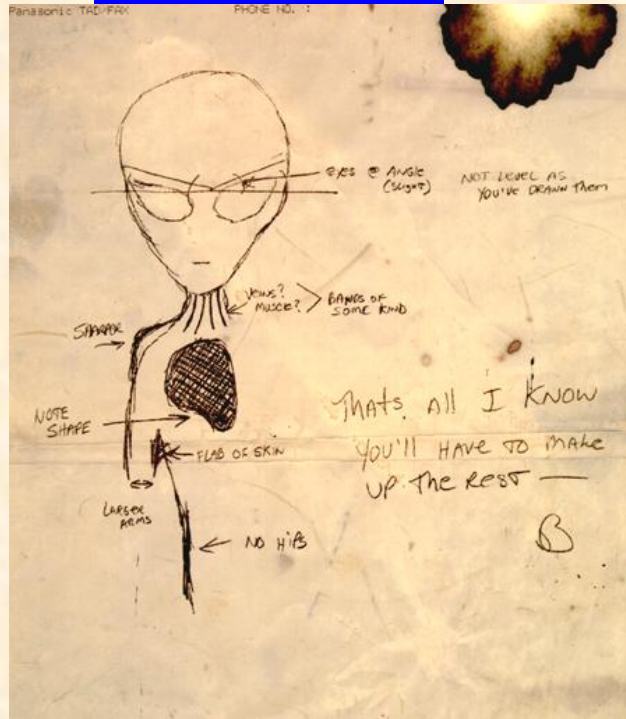 Panasonic TAD/FAX PHONE NO. :
EYES @ ANGLE
(SLIGHT)
NOT LEVEL AS
YOU'VE DRAWN Them
VEINS?
MUSCLE?
BANDS OF
SOME KIND
SHARPER
NOTE
SHAPE
FLAB OF SKIN
LARGER
ARMS
NO HIPS
Thats All I KNOW
YOU'LL HAVE TO MAKE
UP The REST —
B